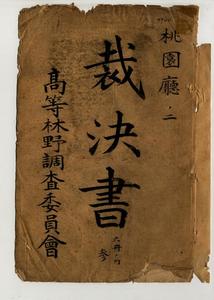 桃園廳ノ二
裁決書
六冊ノ内
参
高等林野調査委員會